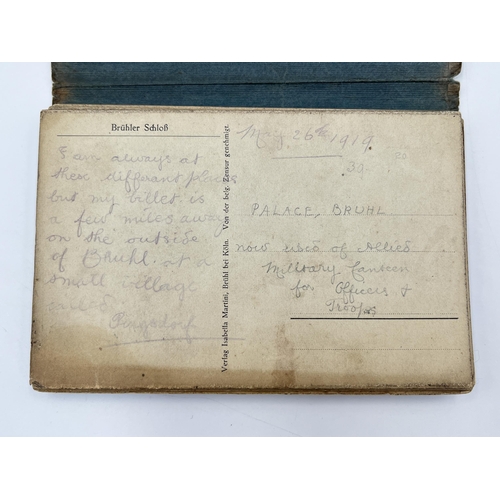 Brühler Schloß
I am always at
these different places
but my billet is
a few miles away
on the outside
of Bruhl. at a
small village
Pingsdorf
Verlag Isabella Martini, Brühl bei Köln. Von der belg. Zensur genehmigt.
May 26th 1919
30
PALACE, BRUHL
now used of Allied
Military Canteen
for Officers &
Troops